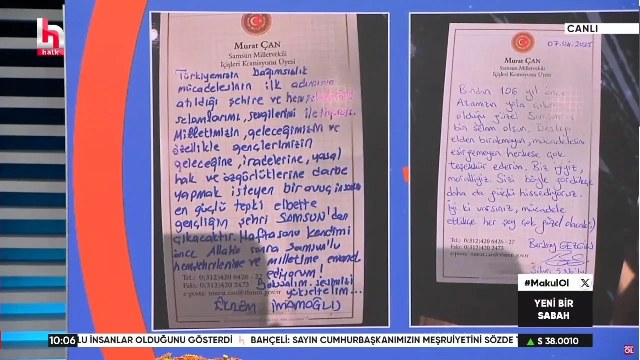 h
halk
Murat ÇAN
Samsun Milletvekili
İçişleri Komisyonu Üyesi
Türkiyemizin bağımsızlık
mücadelesinin ilk adımının
atıldığı şehire ve hemşehrilerimize
selamlarımı, sevgilerimi iletiyorum.
Milletimizin, geleceğimizin ve
özellikle gençlerimizin
geleceğine, iradelerine, yaşal
hak ve özgürlüklerine darbe
yapmak isteyen bir avuç insana
en güçlü tepki elbette
gençliğin şehri SAMSUN'dan
çıkacaktır. Hafta sonu kendimi
önce Allah'a sonra Samsun'lu
hemşehrilerime ve milletime emanet
ediyorum!
sesimizi
yükseltelim...
EKREM İMAMOĞLU
Tel.: 0(312)420 6426 - 27
Faks: 0(312)420 2473
e-posta:
Murat ÇAN
Samsun Milletvekili
İçişleri Komisyonu Üyesi
07.04.2025
Bundan 106 yıl önce
Atamızın yola
olduğu güzel
bin selam olsun. Desteği
elden bırakmayan, mücadelesini
esirgemeyen herkese çok
teşekkür ederim. Biz iyiyiz,
moralliyiz. Sizi böyle gördükçe
daha da güçlü hissediyoruz.
İyi ki varsınız, mücadele
ettikçe her şey çok güzel olacak :)
Tel.: 0(312)420 6426 - 27
Faks: 0(312)420 2473
e-posta:
CANLI
#Makul01 X
YENİ BİR
SABAH
10:06 LU İNSANLAR OLDUĞUNU GÖSTERDİ h BAHÇELİ: SAYIN CUMHURBAŞKANIMIZIN MEŞRUİYETİNİ SÖZDE T $ 38.0010